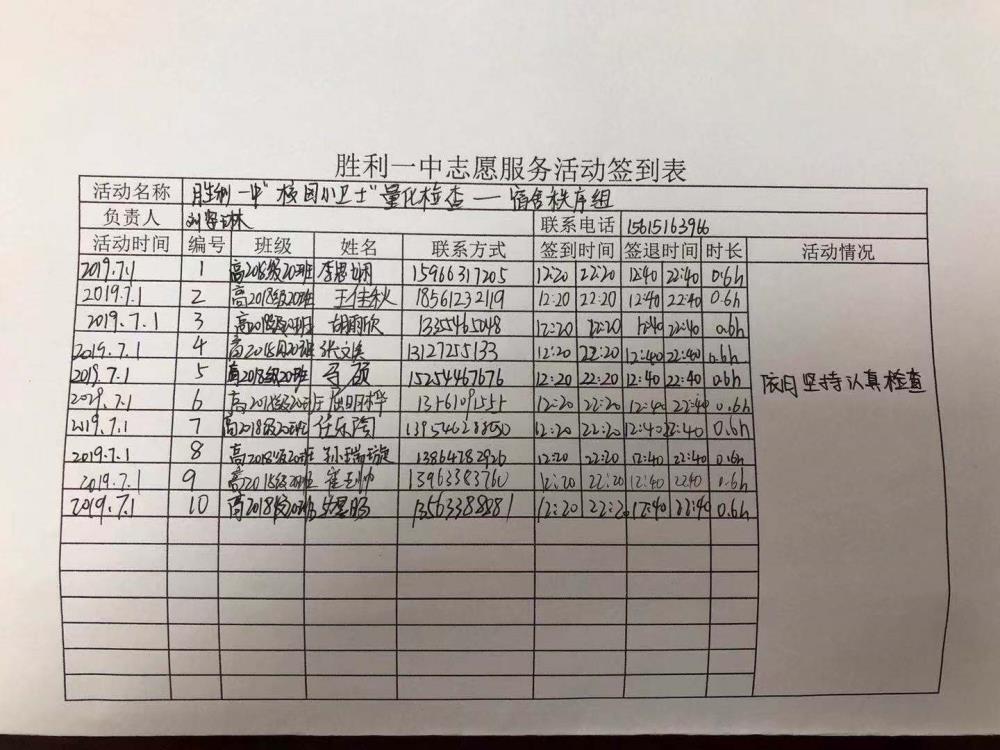 胜利一中志愿服务活动签到表
活动名称 胜利一中"校园小卫士"量化检查——宿舍秩序组
负责人 联系电话 15615163966
活动时间 编号 班级 姓名 联系方式 签到时间 签退时间 时长 活动情况
2019.7.1 1 高2018级20班 15966317205 12:20 22:20 12:40 22:40 0.6h
2019.7.1 2 高2018级20班 王佳秋 18561232119 12:20 22:20 12:40 22:40 0.6h
2019.7.1 3 高2018级20班 胡雨欣 12:20 22:20 12:40 22:40 0.6h
2019.7.1 4 高2018级20班 13127255133 12:20 22:20 12:40 22:40 0.6h
2019.7.1 5 高2018级20班 15254467676 12:20 22:20 12:40 22:40 0.6h
2019.7.1 6 高2018级20班 12:20 22:20 12:40 22:40 0.6h
2019.7.1 7 高2018级20班 任乐陶 12:20 22:20 12:40 22:40 0.6h
2019.7.1 8 高2018级20班 孙瑞璇 13864782926 12:20 22:20 12:40 22:40 0.6h
2019.7.1 9 高2018级20班 13963383760 12:20 22:20 12:40 2240 0.6h
2019.7.1 10 高2018级20班 13563388881 12:20 22:20 12:40 22:40 0.6h
坚持认真检查